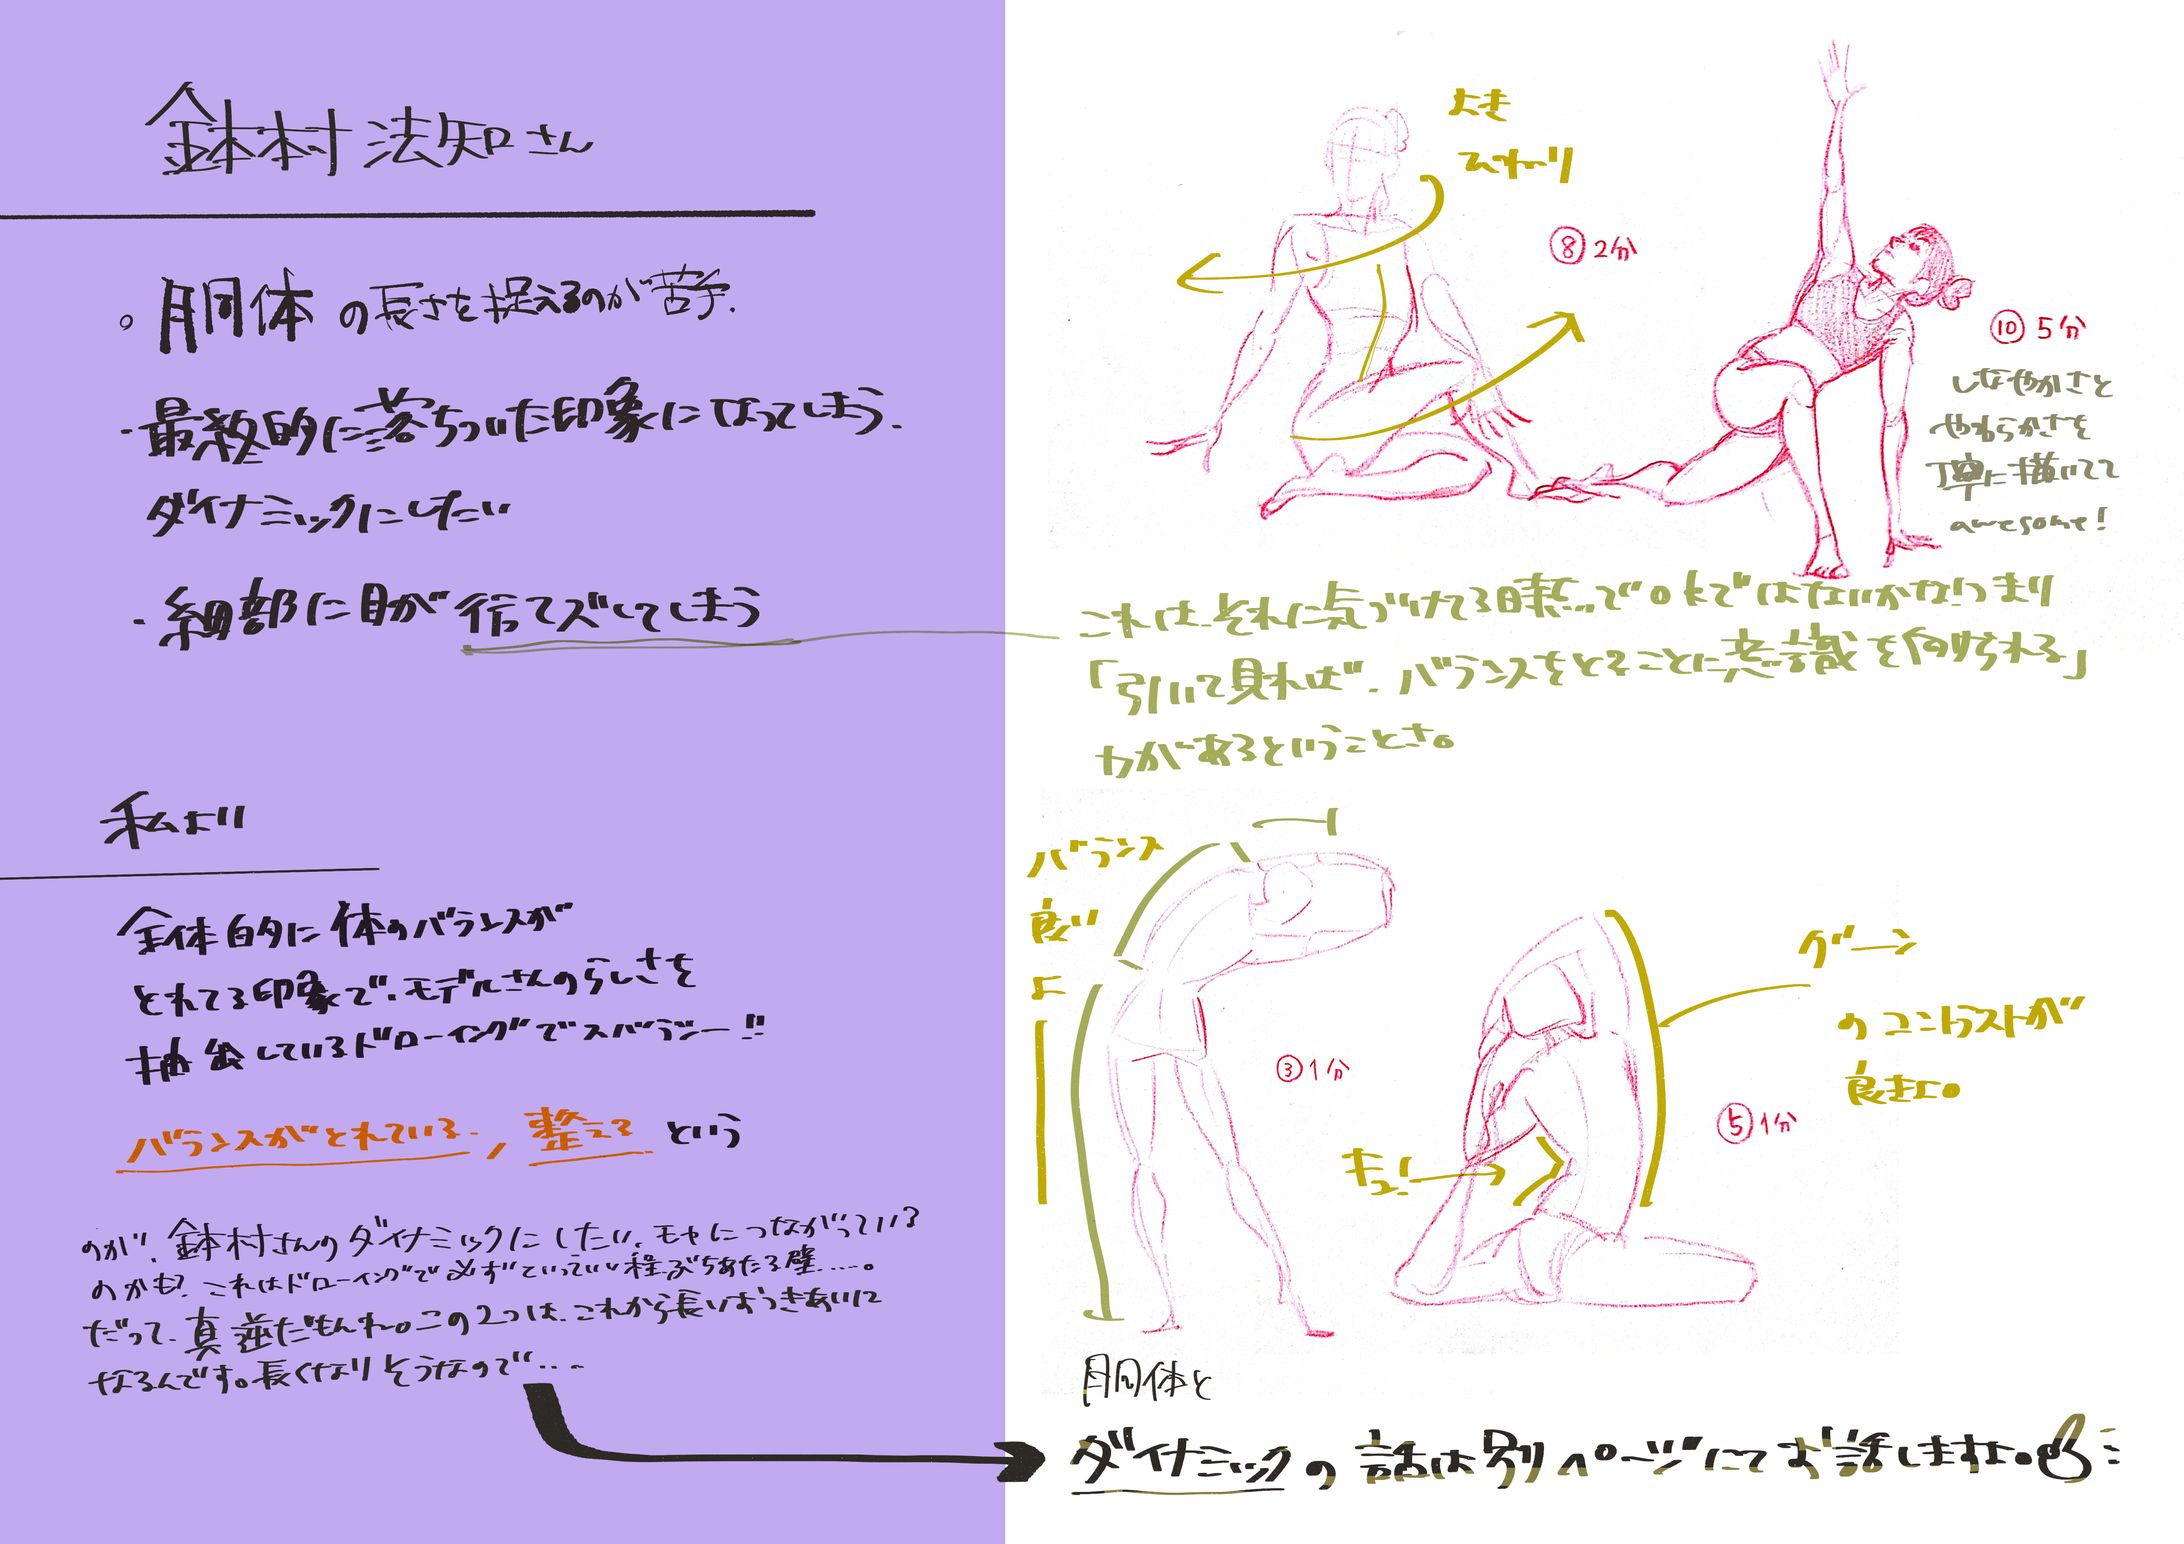 鉢村 法知さん
。胴体の長さを捉えるのが苦手.
・最終的に落ちついた印象になってしまう.
ダイナミックにしたい
・細部に目が行ってズレてしまう
私より
全体的に体のバランスが
とれてる印象で、モデルさんのらしさを
抽出しているドローイングでスバラシー!!
バランスがとれている、整える という
のが、鉢村さんの ダイナミックにしたい、モヤにつながっている
のかも? これはドローイングで必ずといっていい程ぶちあたる壁....。
だって、真逆だもんね。この2つは、これから長いおつきあいに
なるんです。長くなりそうなので....
よき
ひねり
⑧2分
⑩5分
しなやかさと
やわらかさを
丁寧に描いてて
awesome!
これは、それに気づけてる時点..でOKではないかな。つまり
「引いて見れば、バランスをとることに意識を向けられる」
力があるということさ。
バランス
良い
よ
③1分
グーン
のコントラストが
良きよ。
⑤1分
キュ!
胴体と
ダイナミックの話は別ページにてお話しますね。